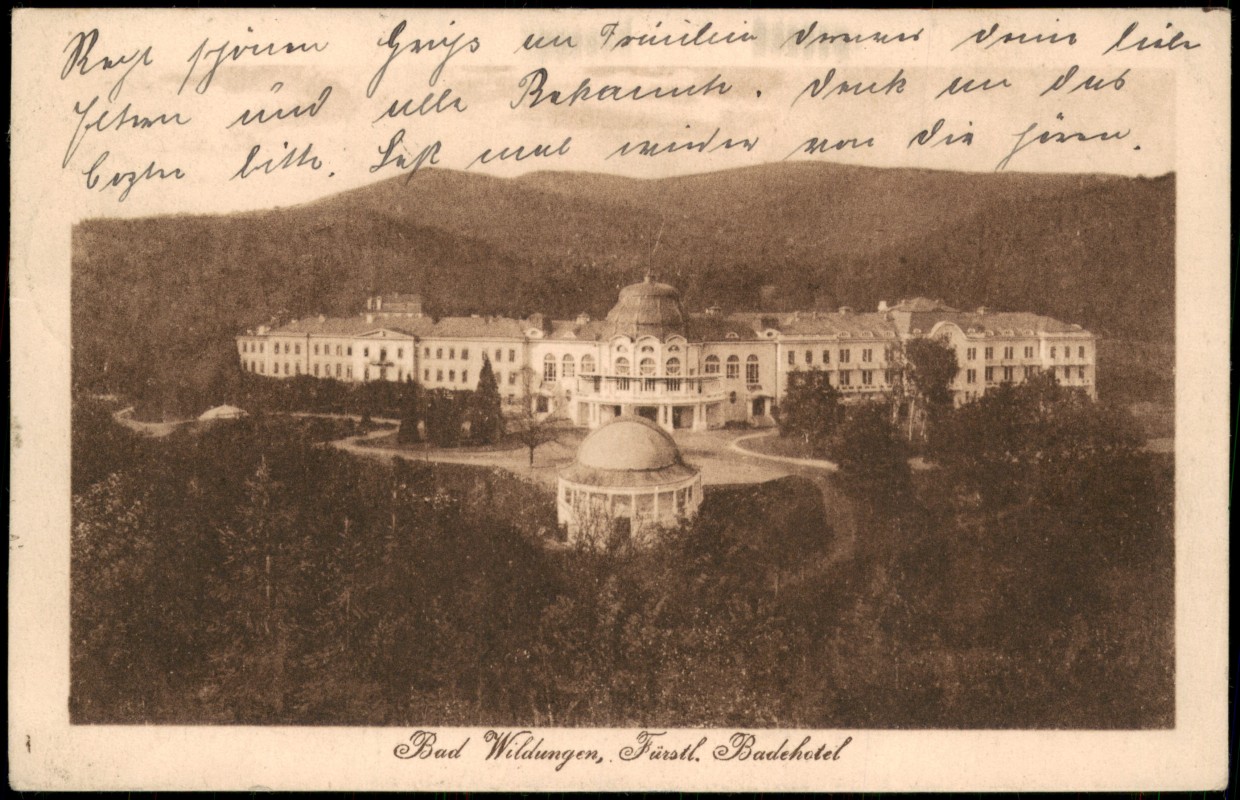 Recht schönen Gruß an Fräulein deine liebe
Eltern und alle Bekannte. Denk an das
bitte. Laß mal wieder von Dir hören.
Bad Wildungen, Fürstl. Badehotel